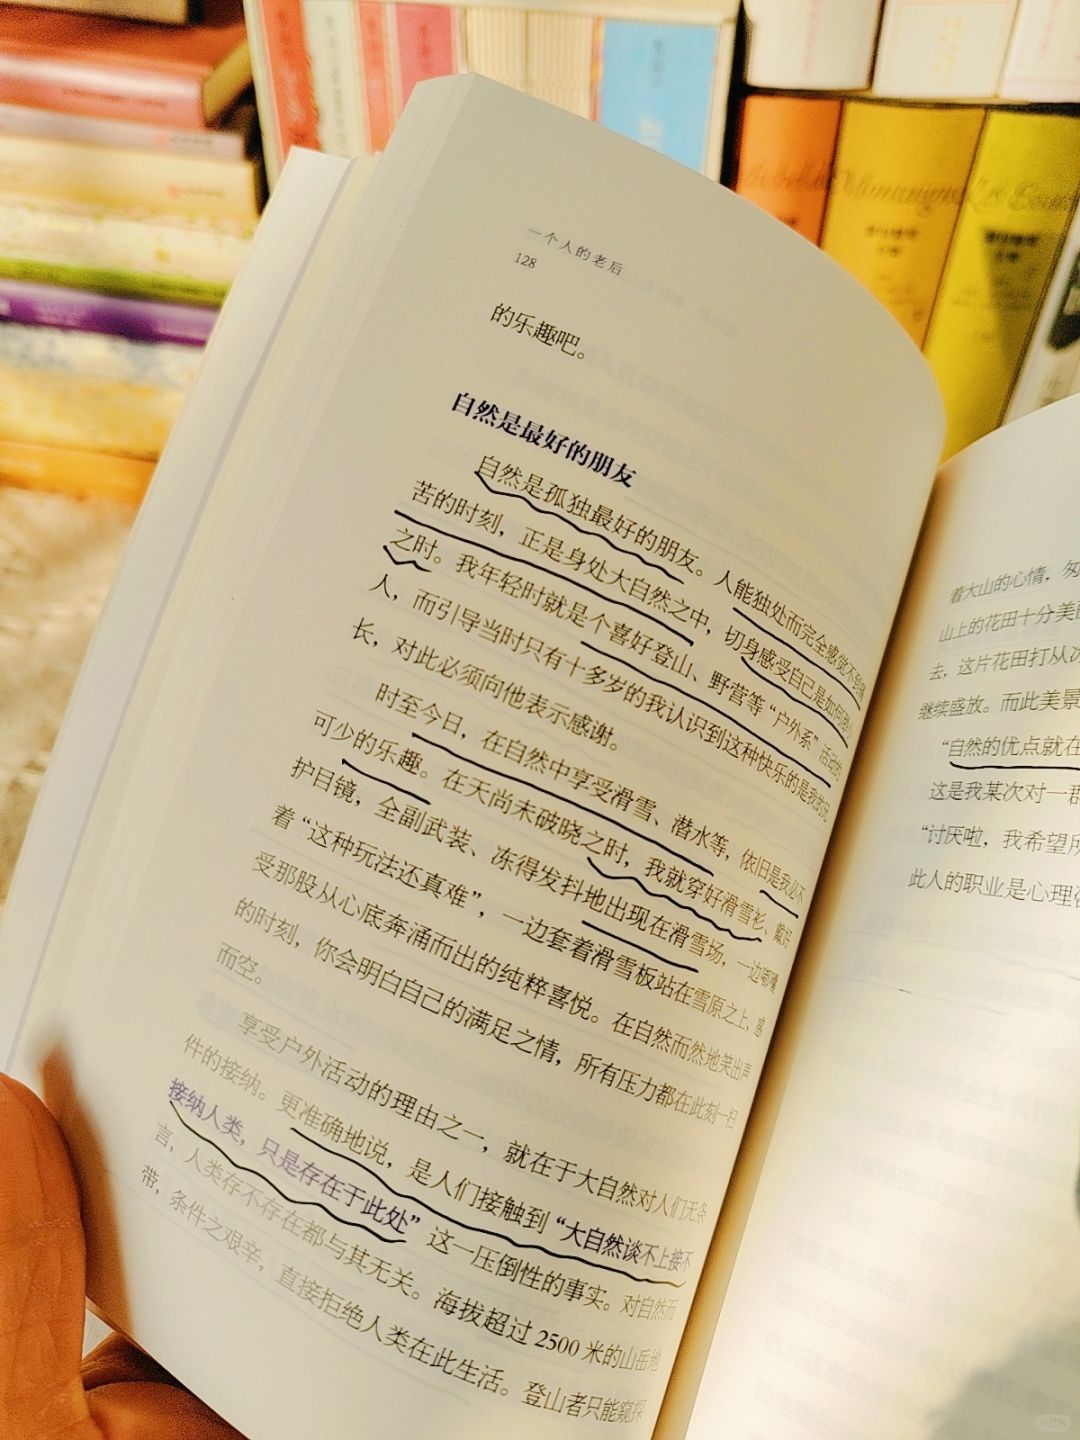 一个人的老后
128
的乐趣吧。
自然是最好的朋友
自然是孤独最好的朋友。人能独处而完全感觉不到痛
苦的时刻，正是身处大自然之中，切身感受自己是如何渺小
之时。我年轻时就是个喜好登山、野营等“户外系”活动的
人，而引导当时只有十多岁的我认识到这种快乐的是我的兄
长，对此必须向他表示感谢。
时至今日，在自然中享受滑雪、潜水等，依旧是我必不
可少的乐趣。在天尚未破晓之时，我就穿好滑雪衫、戴好
护目镜，全副武装、冻得发抖地出现在滑雪场，一边嘟囔
着“这种玩法还真难”，一边套着滑雪板站在雪原之上，感
受那股从心底奔涌而出的纯粹喜悦。在自然而然地笑出声
的时刻，你会明白自己的满足之情，所有压力都在此刻一扫
而空。
享受户外活动的理由之一，就在于大自然对人们无条
件的接纳。更准确地说，是人们接触到“大自然谈不上接不
接纳人类，只是存在于此处”这一压倒性的事实。对自然而
言，人类存不存在都与其无关。海拔超过 2500 米的山岳地
带，条件之艰辛，直接拒绝人类在此生活。登山者只能窥探
着大山的心情，匆
山上的花田十分美
去，这片花田打从次
继续盛放。而此美景
“自然的优点就在
这是我某次对一群
“讨厌啦，我希望所
此人的职业是心理